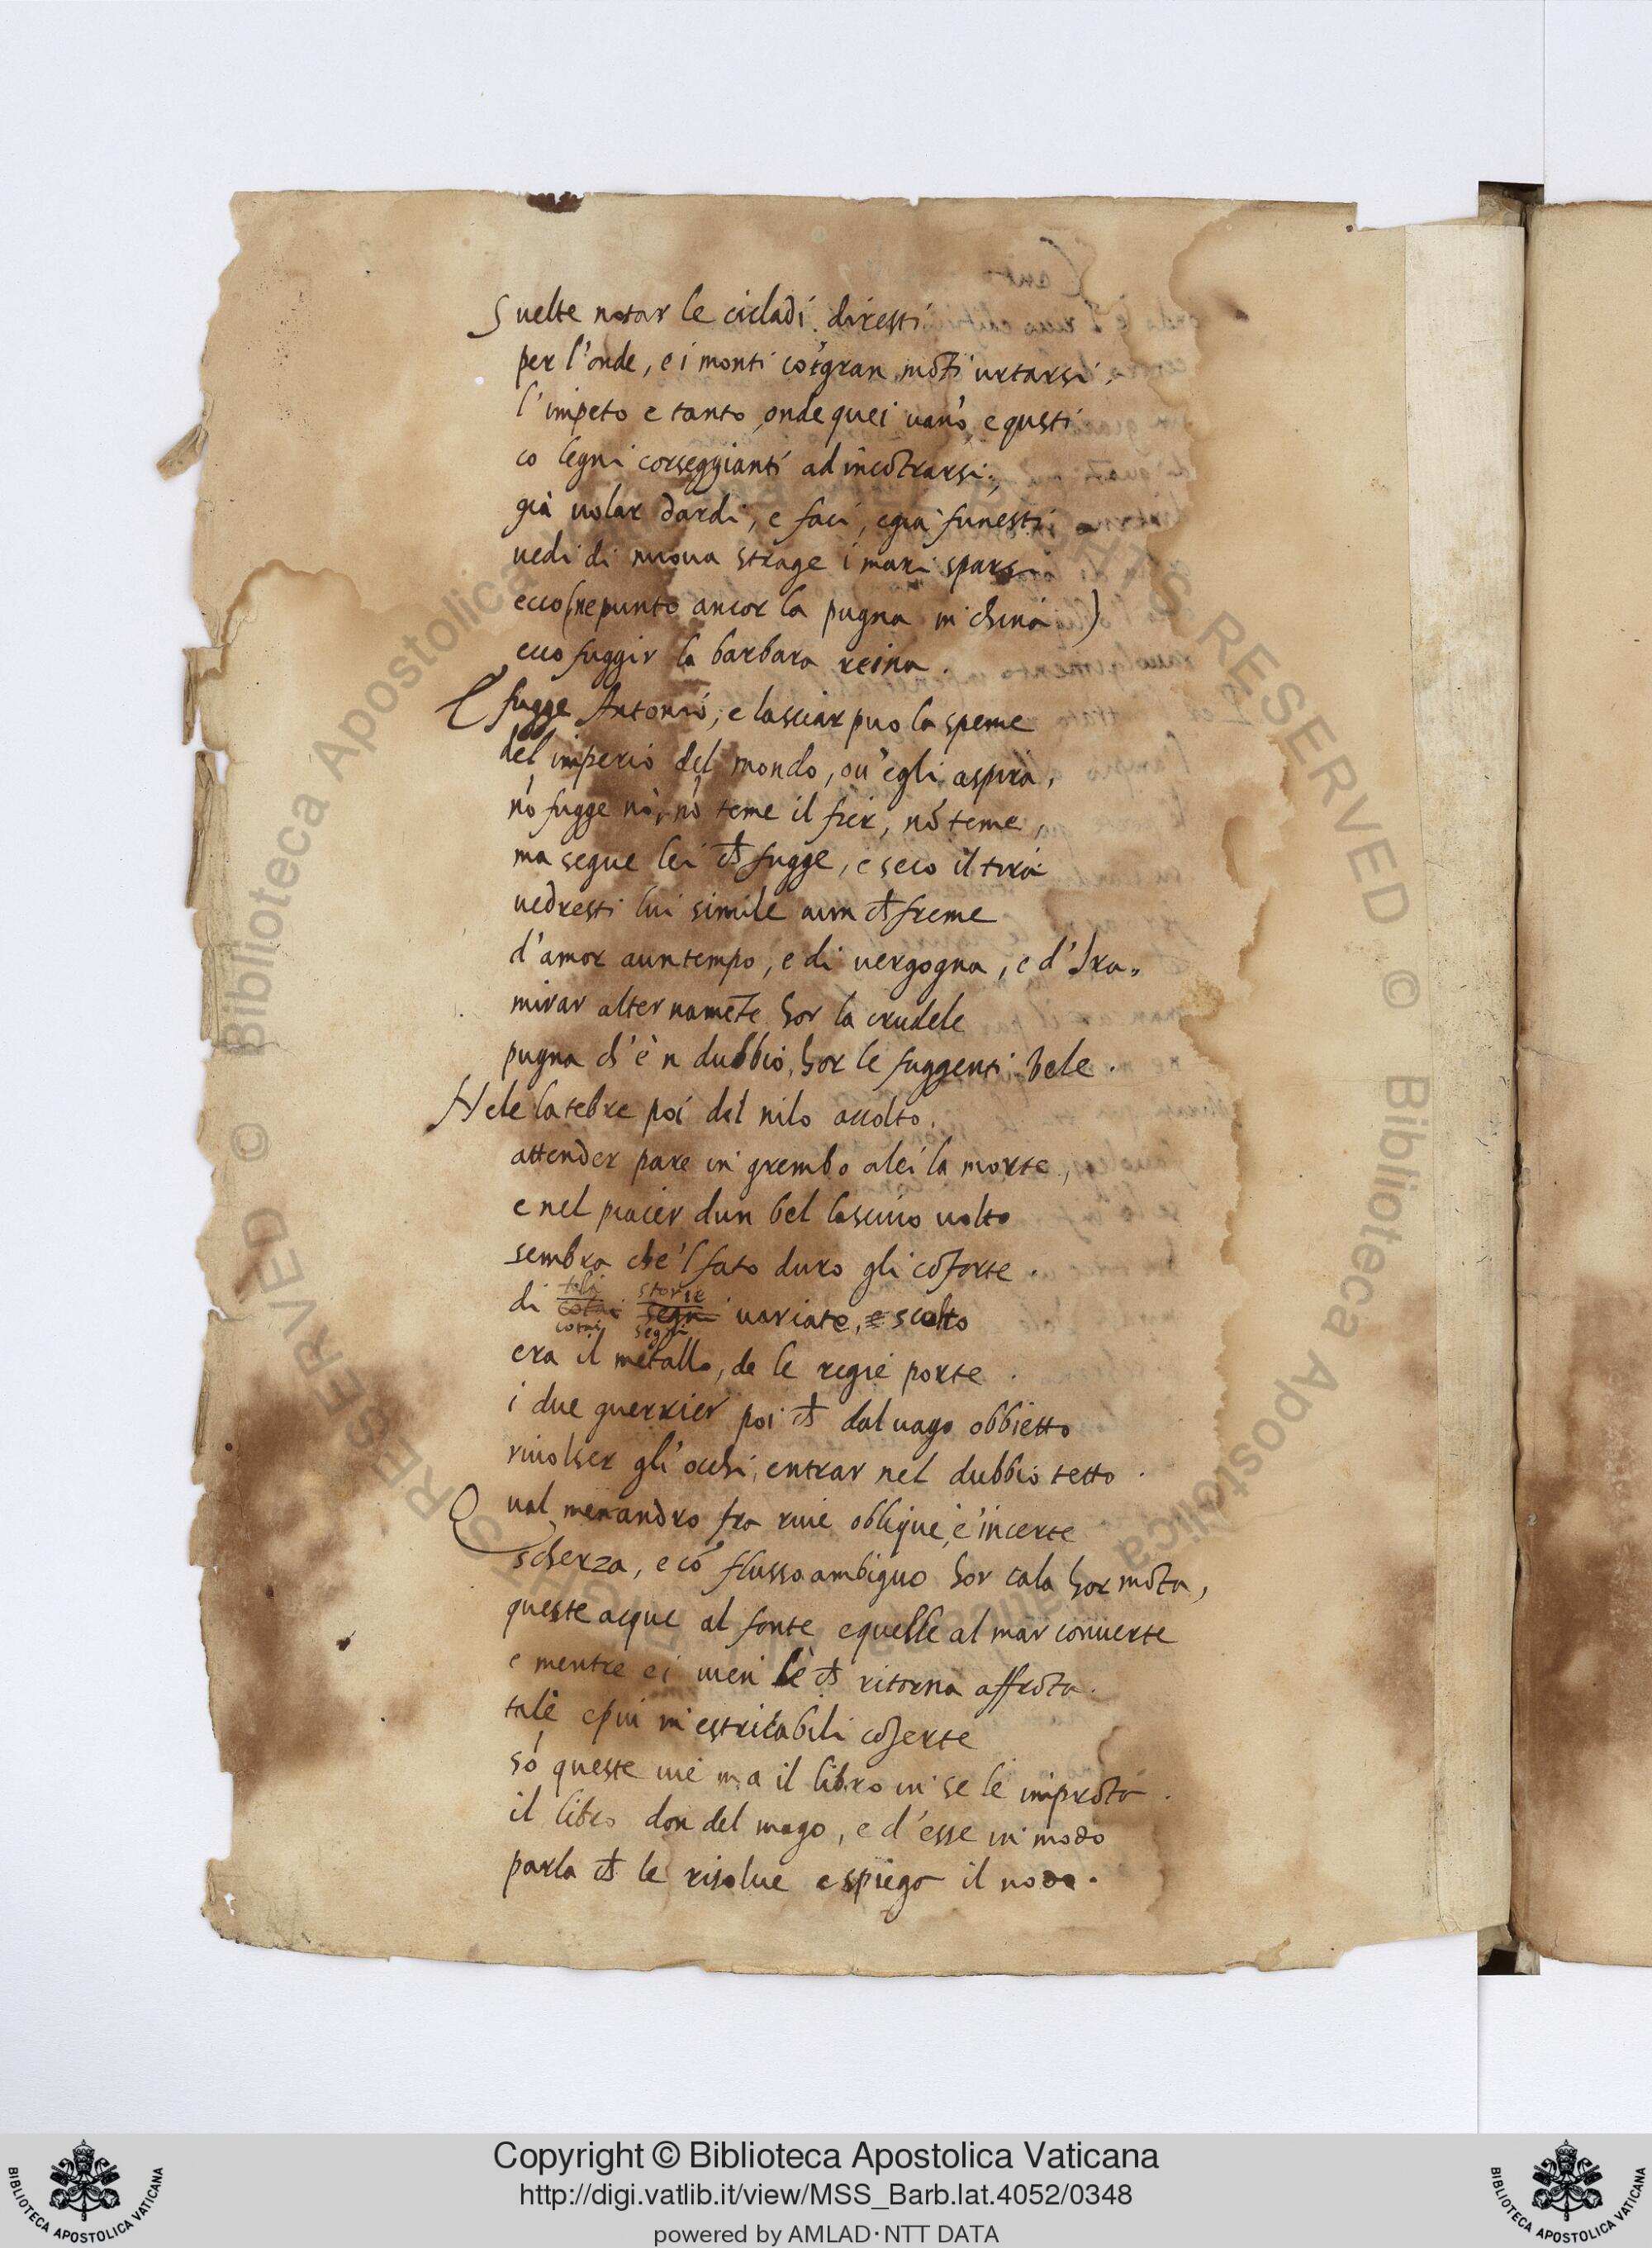 Suelte notar le cicladi diresti
per l'onde, e i monti cō gran mōti urtarsi,
l'impeto e tanto, onde quei uanō, e qusti
co legni corseggianti ad incōtrarsi;
già uolar dardi, e faci, e gia funesti
uedi di nuoua strage i mari sparsi
ecco (ne punto ancor la pugna in china)
ecco fuggir la barbara reina.
E fugge Antonio, e lasciar puo la speme
del imperio del mondo, ou'egli aspira,
nō fugge nò, nō teme il fier, nō teme,
ma segue lei ch fugge, e seco il tira
uedresti lui simile aun ch freme
d'amor auntempo, e di uergogna, e d'Ira,
mirar alternamēte hor la crudele
pugna ch'è n dubbio, hor le fuggenti vele.
Ne le latebre poi del nilo accolto,
attender pare in grembo alei la morte,
e nel piacer dun bel lasciuo uolto
sembra che'l fato duro gli cōforte.
tali storie
di cotai segni uariate, e scolto
cotai segni
era il metallo, de le regie porte.
i due guerrier poi ch dal uago obbietto
riuolser gli'occhi, entrar nel dubbio tetto.
Qual meandro fra riue oblique, e'incerte
scherza, e cō flusso ambiguo hor cala hor mōta,
queste acque al fonte equelle al mar conuerte
e mentre ei uien sè ch ritorna affrōta.
tale e piu in estricabili cōserte
sō queste uie ma il libro in se le imprōta.
il libro don del mago, e d'esse in modo
parla ch le risolue e spiega il nodo.
© Biblioteca Apostolica
RESERVED
Copyright © Biblioteca Apostolica Vaticana
http://digi.vatlib.it/view/MSS_Barb.lat.4052/0348
powered by AMLAD·NTT DATA
BIBLIOTECA APOSTOLICA VATICANA
BIBLIOTECA APOSTOLICA VATICANA